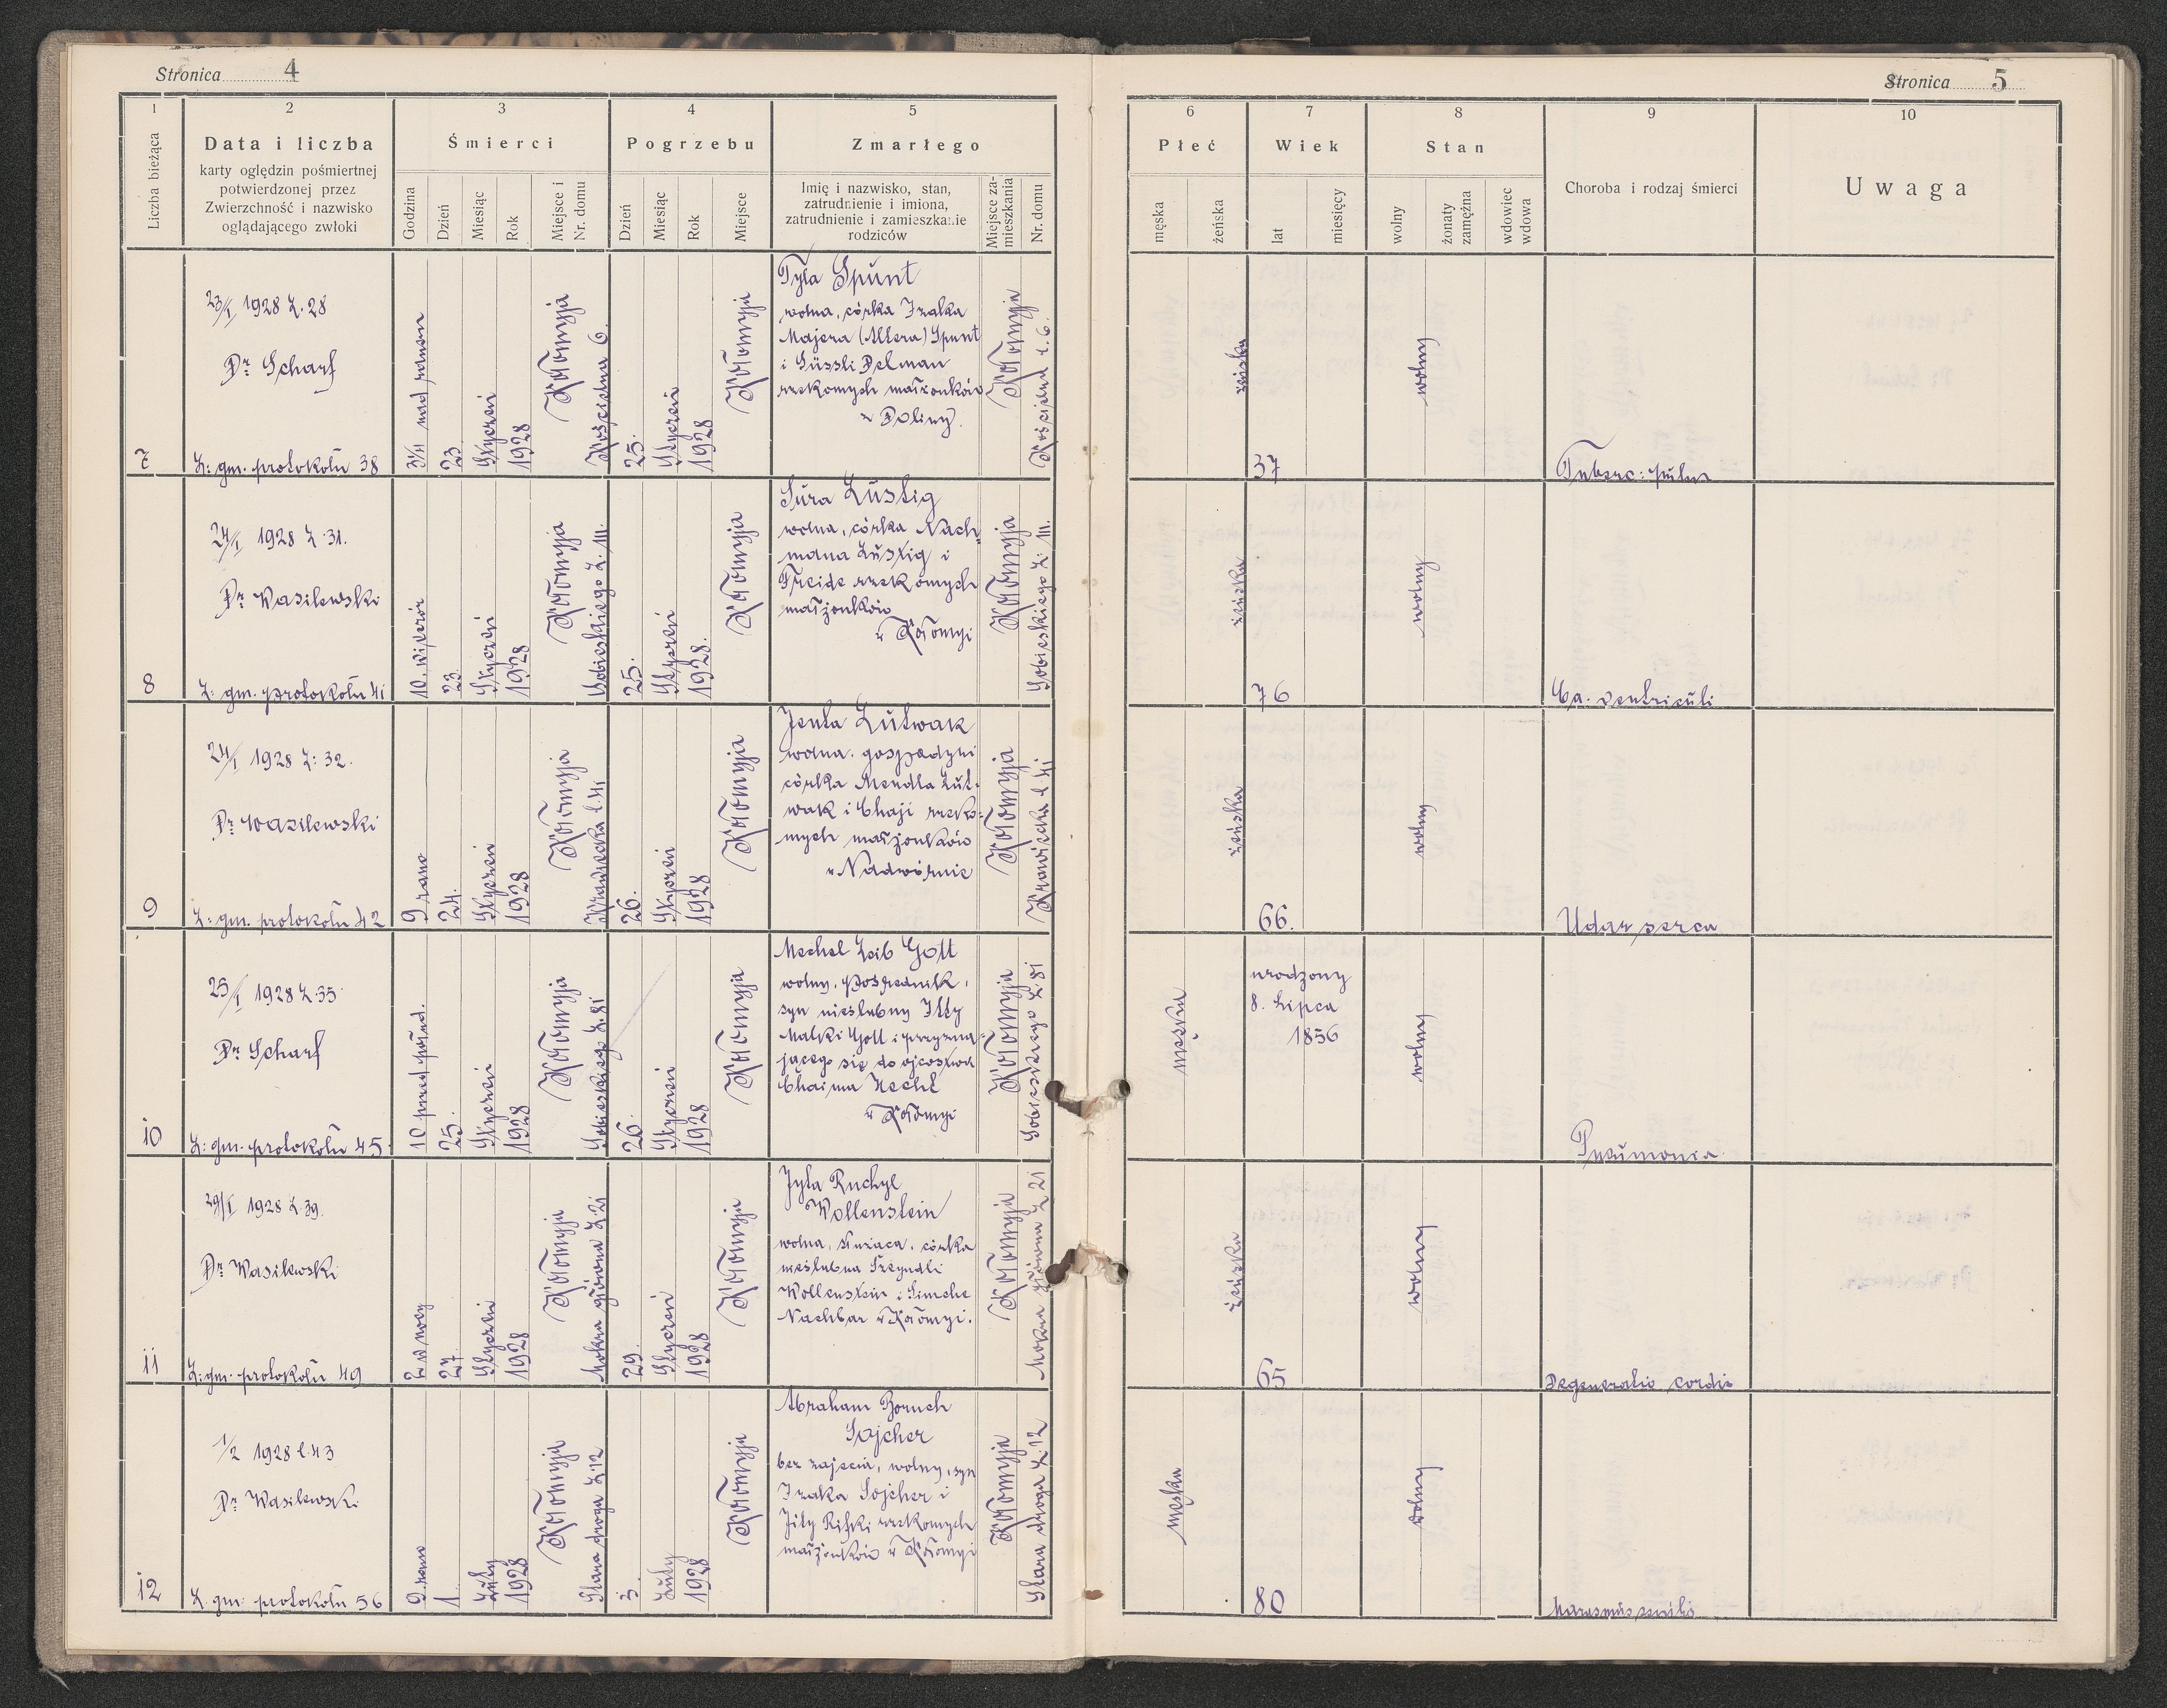 Stronica 4
1
2
3
4
5
Liczba bieżąca
Data i liczba
karty oględzin pośmiertnej
potwierdzonej przez
Zwierzchność i nazwisko
oglądającego zwłoki
Śmierci
Godzina
Dzień
Miesiąc
Rok
Miejsce i
Nr. domu
Pogrzebu
Dzień
Miesiąc
Rok
Miejsce
Zmarłego
Imię i nazwisko, stan,
zatrudnienie i imiona,
zatrudnienie i zamieszkanie
rodziców
Miejsce za-
mieszkania
Nr. domu
7
23/I 1928 L. 28
Dr Scharf
L: gm. protokołu 38
nad ranem
23
Styczeń
1928
Kołomyja
Kościelna 6.
25.
Styczeń
1928
Kołomyja
Tyla Spunt
wolna, córka Izaka
Majera (Altera) Spunt
i Güssli Delman
rzekomych małżonków
z Doliny.
Kołomyja
Kościelna L. 6.
8
24/I 1928 L. 31.
Dr Wasilewski
L: gm. protokołu 41
10. wieczór
23.
Styczeń
1928
Kołomyja
Sobieskiego L. 111.
25.
Styczeń
1928.
Kołomyja
Sura Lustig
wolna, córka Nach-
mana Lustig i
Freide rzekomych
małżonków
w Kołomyi
Kołomyja
Sobieskiego L: 111.
9
24/I 1928 L: 32.
Dr Wasilewski
L: gm. protokołu 42
9 rano
24.
Styczeń
1928
Kołomyja
Krawiecka l. 41
26.
Styczeń
1928
Kołomyja
Jenta Lutwak
wolna. gospodyni
córka Mendla Lut-
wak i Chaji rzeko-
mych małżonków
w Nadwórnie
Kołomyja
Krawiecka l. 41
10
25/I 1928 L. 35
Dr Scharf
L: gm. protokołu 45.
10 przed połud.
25.
Styczeń
1928
Kołomyja
Sobieskiego L. 81
26
Styczeń
1928
Kołomyja
Mechel Leib Gott
wolny, pośrednik,
syn nieślubny Itty
Malki Gott i przyzna-
jącego się do ojcostwa
Chaima Hecht
w Kołomyi
Kołomyja
Sobieskiego L. 81
11
29/I 1928 L. 39.
Dr Wasilewski
L: gm. protokołu 49
2 w nocy
27.
Styczeń
1928
Kołomyja
Mokra główna L. 21
29.
Styczeń
1928
Kołomyja
Jyta Ruchyl
Wollenstein
wolna, służąca. córka
nieślubna
Wollenstein i Simche
Nachbar w Kołomyi.
Kołomyja
Mokra główna L 21
12
1/2 1928 l. 43
Dr Wasilewski
L. gm. protokołu 56
9 rano
1.
Luty
1928
Kołomyja
Stara droga L. 12
3.
Luty
1928
Kołomyja
Abraham Boruch
Sojcher
bez zajęcia, wolny, syn
Izaka Sojcher i
Jity Rifki rzekomych
małżonków w Kołomyi
Kołomyja
Stara droga L. 12
Stronica 5
6
7
8
9
10
Płeć
męska
żeńska
Wiek
lat
miesięcy
Stan
wolny
żonaty
zamężna
wdowiec
wdowa
Choroba i rodzaj śmierci
Uwaga
żeńska
37
wolny
Tuberc: pulm
żeńska
76
wolny
Ca. ventriculi
żeńska
66.
wolny
Udar serca
męska
urodzony
8. Lipca
1856
wolny
Pneumonia
żeńska
65
wolny
Degeneratio cordis
męska
80
wolny
Marasmus senilis